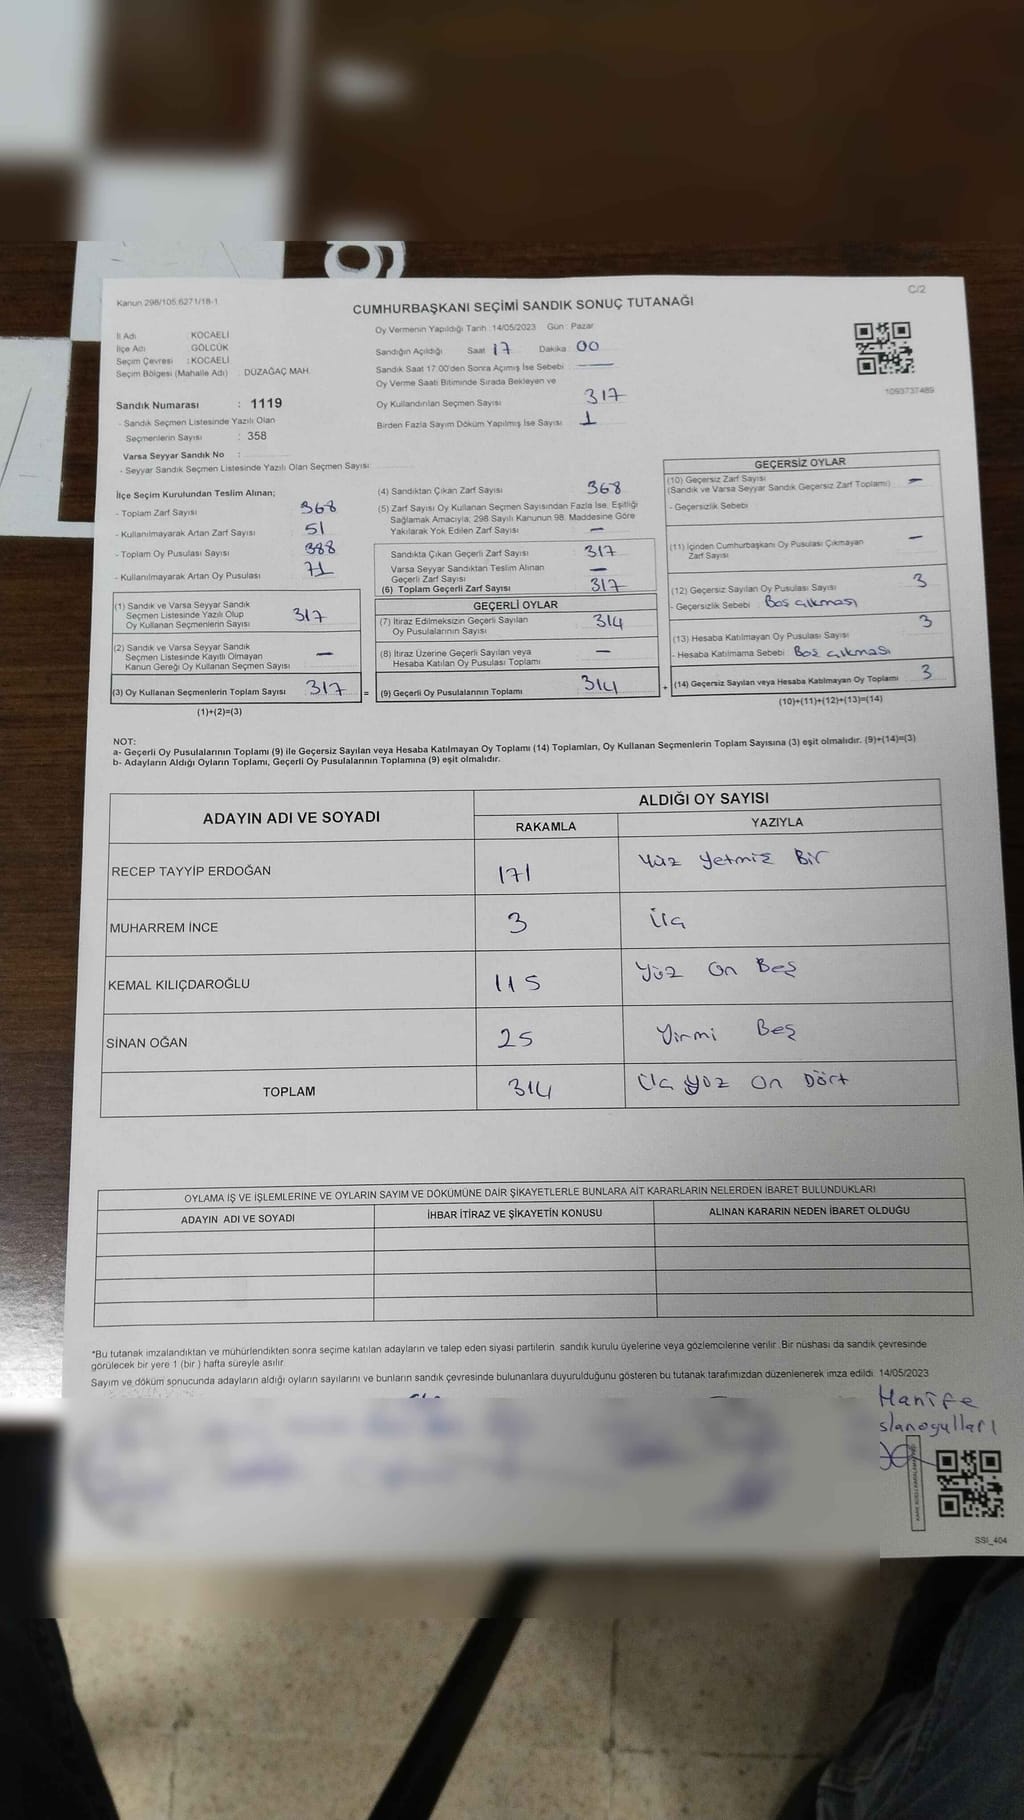 Kanun 298/105,6271/18-1
C/2
CUMHURBAŞKANI SEÇİMİ SANDIK SONUÇ TUTANAĞI
İl Adı : KOCAELİ
İlçe Adı : GÖLCÜK
Seçim Çevresi : KOCAELİ
Seçim Bölgesi (Mahalle Adı) : DÜZAĞAÇ MAH.
Sandık Numarası : 1119
- Sandık Seçmen Listesinde Yazılı Olan
Seçmenlerin Sayısı : 358
Varsa Seyyar Sandık No :
- Seyyar Sandık Seçmen Listesinde Yazılı Olan Seçmen Sayısı:
Oy Vermenin Yapıldığı Tarih : 14/05/2023 Gün : Pazar
Sandığın Açıldığı Saat 17 Dakika : 00
Sandık Saat 17:00'den Sonra Açımış İse Sebebi : —
Oy Verme Saati Bitiminde Sırada Bekleyen ve
Oy Kullandırılan Seçmen Sayısı 317
Birden Fazla Sayım Döküm Yapılmış İse Sayısı 1
1093737489
İlçe Seçim Kurulundan Teslim Alınan;
- Toplam Zarf Sayısı 368
- Kullanılmayarak Artan Zarf Sayısı 51
- Toplam Oy Pusulası Sayısı 388
- Kullanılmayarak Artan Oy Pusulası 71
(1) Sandık ve Varsa Seyyar Sandık
Seçmen Listesinde Yazılı Olup
Oy Kullanan Seçmenlerin Sayısı 317
(2) Sandık ve Varsa Seyyar Sandık
Seçmen Listesinde Kayıtlı Olmayan
Kanun Gereği Oy Kullanan Seçmen Sayısı —
(3) Oy Kullanan Seçmenlerin Toplam Sayısı 317 =
(1)+(2)=(3)
(4) Sandıktan Çıkan Zarf Sayısı 368
(5) Zarf Sayısı Oy Kullanan Seçmen Sayısından Fazla İse, Eşitliği
Sağlamak Amacıyla; 298 Sayılı Kanunun 98. Maddesine Göre
Yakılarak Yok Edilen Zarf Sayısı —
Sandıkta Çıkan Geçerli Zarf Sayısı 317
Varsa Seyyar Sandıktan Teslim Alınan
Geçerli Zarf Sayısı —
(6) Toplam Geçerli Zarf Sayısı 317
GEÇERLİ OYLAR
(7) İtiraz Edilmeksizin Geçerli Sayılan
Oy Pusulalarının Sayısı 314
(8) İtiraz Üzerine Geçerli Sayılan veya
Hesaba Katılan Oy Pusulası Toplamı —
(9) Geçerli Oy Pusulalarının Toplamı 314 +
GEÇERSİZ OYLAR
(10) Geçersiz Zarf Sayısı
(Sandık ve Varsa Seyyar Sandık Geçersiz Zarf Toplamı) —
- Geçersizlik Sebebi
(11) İçinden Cumhurbaşkanı Oy Pusulası Çıkmayan
Zarf Sayısı —
(12) Geçersiz Sayılan Oy Pusulası Sayısı 3
- Geçersizlik Sebebi : Boş çıkması
(13) Hesaba Katılmayan Oy Pusulası Sayısı 3
- Hesaba Katılmama Sebebi : Boş çıkması
(14) Geçersiz Sayılan veya Hesaba Katılmayan Oy Toplamı 3
(10)+(11)+(12)+(13)=(14)
NOT:
a- Geçerli Oy Pusulalarının Toplamı (9) ile Geçersiz Sayılan veya Hesaba Katılmayan Oy Toplamı (14) Toplamları, Oy Kullanan Seçmenlerin Toplam Sayısına (3) eşit olmalıdır. (9)+(14)=(3)
b- Adayların Aldığı Oyların Toplamı, Geçerli Oy Pusulalarının Toplamına (9) eşit olmalıdır.
ADAYIN ADI VE SOYADI
ALDIĞI OY SAYISI
RAKAMLA YAZIYLA
RECEP TAYYİP ERDOĞAN 171 Yüz Yetmiş Bir
MUHARREM İNCE 3 Üç
KEMAL KILIÇDAROĞLU 115 Yüz On Beş
SİNAN OĞAN 25 Yirmi Beş
TOPLAM 314 Üç Yüz On Dört
OYLAMA İŞ VE İŞLEMLERİNE VE OYLARIN SAYIM VE DÖKÜMÜNE DAİR ŞİKAYETLERLE BUNLARA AİT KARARLARIN NELERDEN İBARET BULUNDUKLARI
ADAYIN ADI VE SOYADI İHBAR İTİRAZ VE ŞİKAYETİN KONUSU ALINAN KARARIN NEDEN İBARET OLDUĞU
*Bu tutanak imzalandıktan ve mühürlendikten sonra seçime katılan adayların ve talep eden siyasi partilerin sandık kurulu üyelerine veya gözlemcilerine verilir. Bir nüshası da sandık çevresinde
görülecek bir yere 1 (bir ) hafta süreyle asılır.
Sayım ve döküm sonucunda adayların aldığı oyların sayılarını ve bunların sandık çevresinde bulunanlara duyurulduğunu gösteren bu tutanak tarafımızdan düzenlenerek imza edildi. 14/05/2023
Hanife
slanogulları
SSI_404